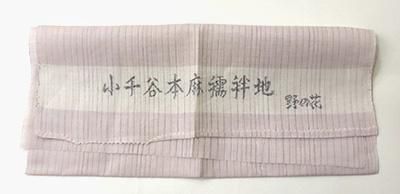 小千谷本麻襦袢地
野の花